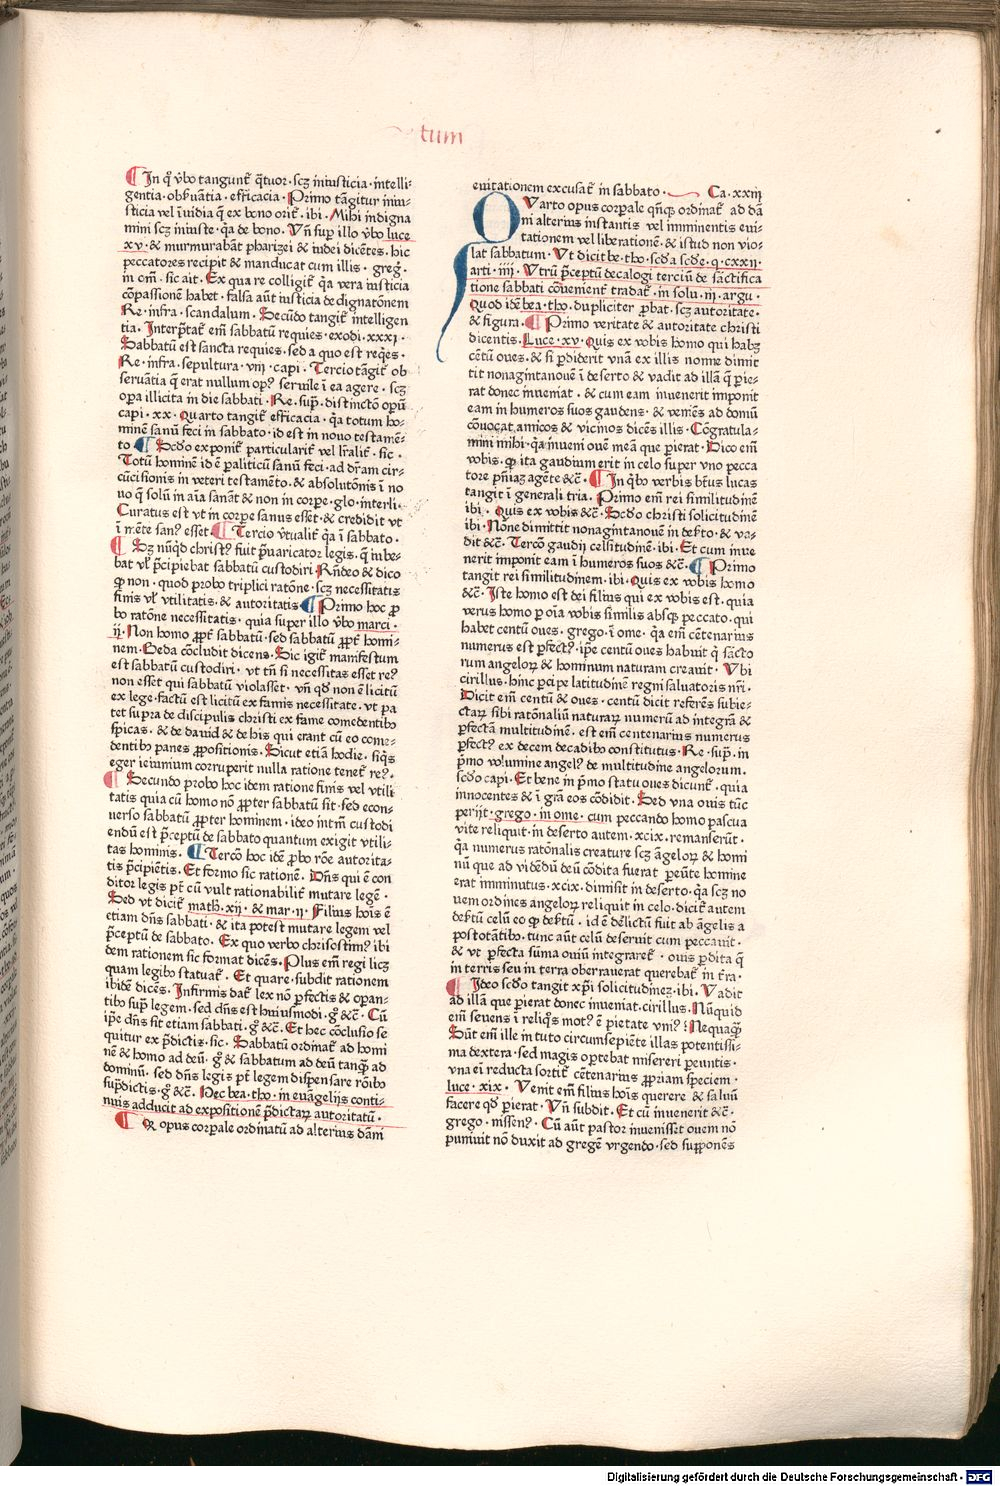 tum
¶ In q̃ v̓bo tangunt᷑ q̃tuor · scꝫ iniusticia · intelli⸗
gentia · obẜuãtia · efficacia · Primo tãgitur iniu⸗
sticia vel ĩuidia q̃ ex bono orit᷑ · ibi · Mihi indigna
mini scꝫ iniuste · q̃a de bono · Vñ sup̱ illo v̓bo luce
xv · & murmurabãt pharizei & iudei dicẽtes · hic
peccatores recipit & manducat cum illis · greg̓ ·
in om̃ · sic ait · Ex qua re colligit᷑ q̃a vera iusticia
cõpassionẽ habet · falsa aũt iusticia dedignatõnem
Re · infra · scandalum · Secũdo tangit᷑ intelligen
tia · Interp̱tat᷑ em̃ sabbatũ requies · exodi · xxxı ·
Sabbatũ est sancta requies · sed a quo est req̃es ·
Re · infra · sepultura · vııı · capi · Tercio tãgit᷑ ob
seruãtia q̃ erat nullum op᷒ seruile ĩ ea agere · scꝫ
op̱a illicita in die sabbati · Re · sup̱ · distinctõ op̱ũ
capi · xx · Quarto tangit᷑ efficacia · q̃a totum ho⸗
minẽ sanũ feci in sabbato · id est in nouo testamẽ⸗
to ¶ Scd̓o exponit᷑ particularit᷑ vel l̓ralit᷑ · sic ·
Totũ hominẽ id ẽ paliticũ sanũ feci · ad dr̃am cir⸗
cũcisionis in veteri testamẽto · & absolutõnis ĩ no
uo q̃ solũ in aĩa sanãt & non in corpe · glo · interli ·
Curatus est vt in corpe sanus esset · & credidit vt
ĩ mẽte san᷒ esset ¶ Tercio v̓tualit᷑ q̃a ĩ sabbato ·
¶ Sꝫ nũq̃d christ᷒ fuit p̃uaricator legis · q̃ iube⸗
bat vł p̃cipiebat sabbatũ custodiri · Rñdeo & dico
ꝙ non · quod ꝓbo triplici ratõne · scꝫ necessitatis
finis vł vtilitatis · & autoritatis · ¶ Primo hoc ꝓ
bo ratõne necessitatis · quia super illo v̓bo marci ·
ıı · Non homo ꝓpt᷑ sabbatũ · sed sabbatũ ꝓpt᷑ homi⸗
nem · Beda cõcludit dicens · Sic igit᷑ manifestum
est sabbatũ custodiri · vt tñ si necessitas esset re᷒
non esset qui sabbatũ violasset · vñ qd̓ non ẽ licitũ
ex lege · factũ est licitũ ex famis necessitate · vt pa
tet supra de discipulis christi ex fame comedentib᷒
spicas · & de dauid & de his qui erant cũ eo come⸗
dentib᷒ panes ꝓpositionis · Sicut etiã hodie · siq̃s
eger ieiunium corruperit nulla ratione tenet᷑ re᷒ ·
¶ Secundo ꝓbo hoc idem ratione finis vel vtili
tatis quia cũ homo nõ ꝓpter sabbatũ sit · sed econ⸗
uerso sabbatũ ꝓpter hominem · ideo intm̃ custodi
endũ est p̃ceptũ de sabbato quantum exigit vtili⸗
tas hominis · ¶ Tercõ hoc idẽ ꝓbo rõe autorita⸗
tis p̃cipiẽtis · Et formo sic rationẽ · Dñs qui ẽ con
ditor legis pt̃ cũ vult rationabilit᷑ mutare legẽ ·
Sed vt dicit᷑ math̓ · xıı · & mar · ıı · Filius hoĩs ẽ
etiam dñs sabbati · & ita potest mutare legem vel
p̃ceptũ de sabbato · Ex quo verbo chrisostim᷒ ibi
dem rationem sic format dicẽs · Plus em̃ regi licꝫ
quam legib᷒ statuat᷑ · Et quare · subdit rationem
ibidẽ dicẽs · Infirmis dat᷑ lex nõ ꝑfectis & oꝑan⸗
tib᷒ sup̱ legem · sed dñs est huiusmodi · g̊ &c̃ · Cũ
ip̃e dñs sit etiam sabbati · g̊ &c̃ · Et hec cõclusio se
quitur ex p̃dictis · sic · Sabbatũ ordinat᷑ ad homi
nẽ & homo ad deũ · g̊ & sabbatum ad deũ tanq̃ ad
dominũ · sed dñs legis pt̃ legem dispensare rõib᷒
sup̱dictis · g̊ &c̃ · Hec bea · tho · in euãgelijs conti⸗
nuis adducit ad expositionẽ p̃dictaꝝ autoritatũ ·
¶ Q opus corꝑale ordinatũ ad alterius dãni
euitationem excusat᷑ in sabbato · Ca · xxııı
QVarto opus corꝑale q̃ñqꝫ ordinat᷑ ad dã
ni alterius instantis vel imminentis eui⸗
tationem vel liberationẽ · & istud non vio⸗
lat sabbatum · Vt dicit be · tho · scd̓a scd̓e · q · cxxıı ·
arti · ıııı · Vtrũ p̃ceptũ decalogi terciũ de sãctifica
tione sabbati cõuenient᷑ tradat᷑ · in solu · ııı · argu ·
Quod idẽ bea · tho · dupliciter ꝓbat · scꝫ autoritate ·
& figura · ¶ Primo veritate & autoritate christi
dicentis · Luce · xv · Quis ex vobis homo qui habꝫ
cẽtũ oues · & si ꝑdiderit vnã ex illis nonne dimit
tit nonagintanouẽ ĩ deserto & vadit ad illã q̃ ꝑie⸗
rat donec inueniat · & cum eam inuenerit imponit
eam in humeros suos gaudens · & veniẽs ad domũ
cõuocat amicos & vicinos dicẽs illis · Cõgratula⸗
mini mihi · q̃a inueni ouẽ meã que ꝑierat · Dico em̃
vobis · ꝙ ita gaudium erit in celo super vno pecca
tore pñiaꝫ agẽte &c̃ · ¶ In q̃bᷣ verbis bt̃us lucas
tangit ĩ generali tria · Primo em̃ rei similitudinẽ
ibi · Quis ex vobis &c̃ · Scd̓o christi solicitudinẽ
ibi · Nõne dimittit nonagintanouẽ in deẜto · & va⸗
dit &c̃ · Tercõ gaudij celsitudinẽ · ibi · Et cum inue
nerit imponit eam ĩ humeros suos &c̃ · ¶ Primo
tangit rei similitudinem · ibi · Quis ex vobis homo
&c̃ · Iste homo est dei filius qui ex vobis est · quia
verus homo ꝑ oĩa vobis similis absqꝫ peccato · qui
habet centũ oues · grego · ĩ ome · q̃a em̃ cẽtenarius
numerus est ꝑfect᷒ · ip̃e centũ oues habuit q̃ sãcto
rum angeloꝝ & hominum naturam creauit · Vbi
cirillus · hinc ꝑcipe latitudinẽ regni saluatoris nr̃i ·
Dicit em̃ centũ & oues · centũ dicit referẽs subie⸗
ctaꝝ sibi ratõnaliũ naturaꝝ numerũ ad integrã &
ꝑfectã multitudinẽ · est em̃ centenarius numerus
ꝑfect᷒ ex decem decadib᷒ constitutus · Re · sup̱ · in
p̃mo volumine angel᷒ de multitudine angelorum ·
scd̓o capi · Et bene in p̃mo statu oues dicunt᷑ · quia
innocentes & ĩ grã eos cõdidit · Sed vna ouis tũc
perijt · grego · in ome · cum peccando homo pascua
vite reliquit · in deserto autem · xcıx · remanserũt ·
q̃a numerus ratõnalis creature scꝫ ãgeloꝝ & homi
nũ que ad vidẽdũ deũ cõdita fuerat ꝑeũte homine
erat imminutus · xcıx · dimisit in deserto · q̃a scꝫ no
uem ordines angeloꝝ reliquit in celo · dicit᷑ autem
deẜtũ celũ eo ꝙ deẜtũ · id ẽ delictũ fuit ab ãgelis a
postotãtib᷒ · tunc aũt celũ deseruit cum peccauit ·
& vt ꝑfecta sũma ouiũ integraret᷑ · ouis ꝑdita q̃
in terris seu in terra oberrauerat querebat᷑ in t̃ra ·
¶ Ideo scd̓o tangit xp̃i solicitudineꝫ · ibi · Vadit
ad illã que ꝑierat donec inueniat · cirillus · Nũquid
em̃ seuens ĩ reliq̃s mot᷒ ẽ pietate vni᷒ · Nequaq̃ꝫ
Sũt em̃ ille in tuto circumsepiẽte illas potentissi⸗
ma dextera · sed magis oꝑtebat misereri ꝑeuntis ·
vna ei reducta sortit᷑ cẽtenarius ꝓpriam speciem ·
luce · xıx · Venit em̃ filius hoĩs querere & saluũ
facere qd̓ ꝑierat · Vñ subdit · Et cũ inuenerit &c̃ ·
grego · nissen᷒ · Cũ aũt pastor inuenisset ouem nõ
puniuit nõ duxit ad gregẽ vrgendo · sed suꝑponẽs
Digitalisierung gefördert durch die Deutsche Forschungsgemeinschaft - DFG